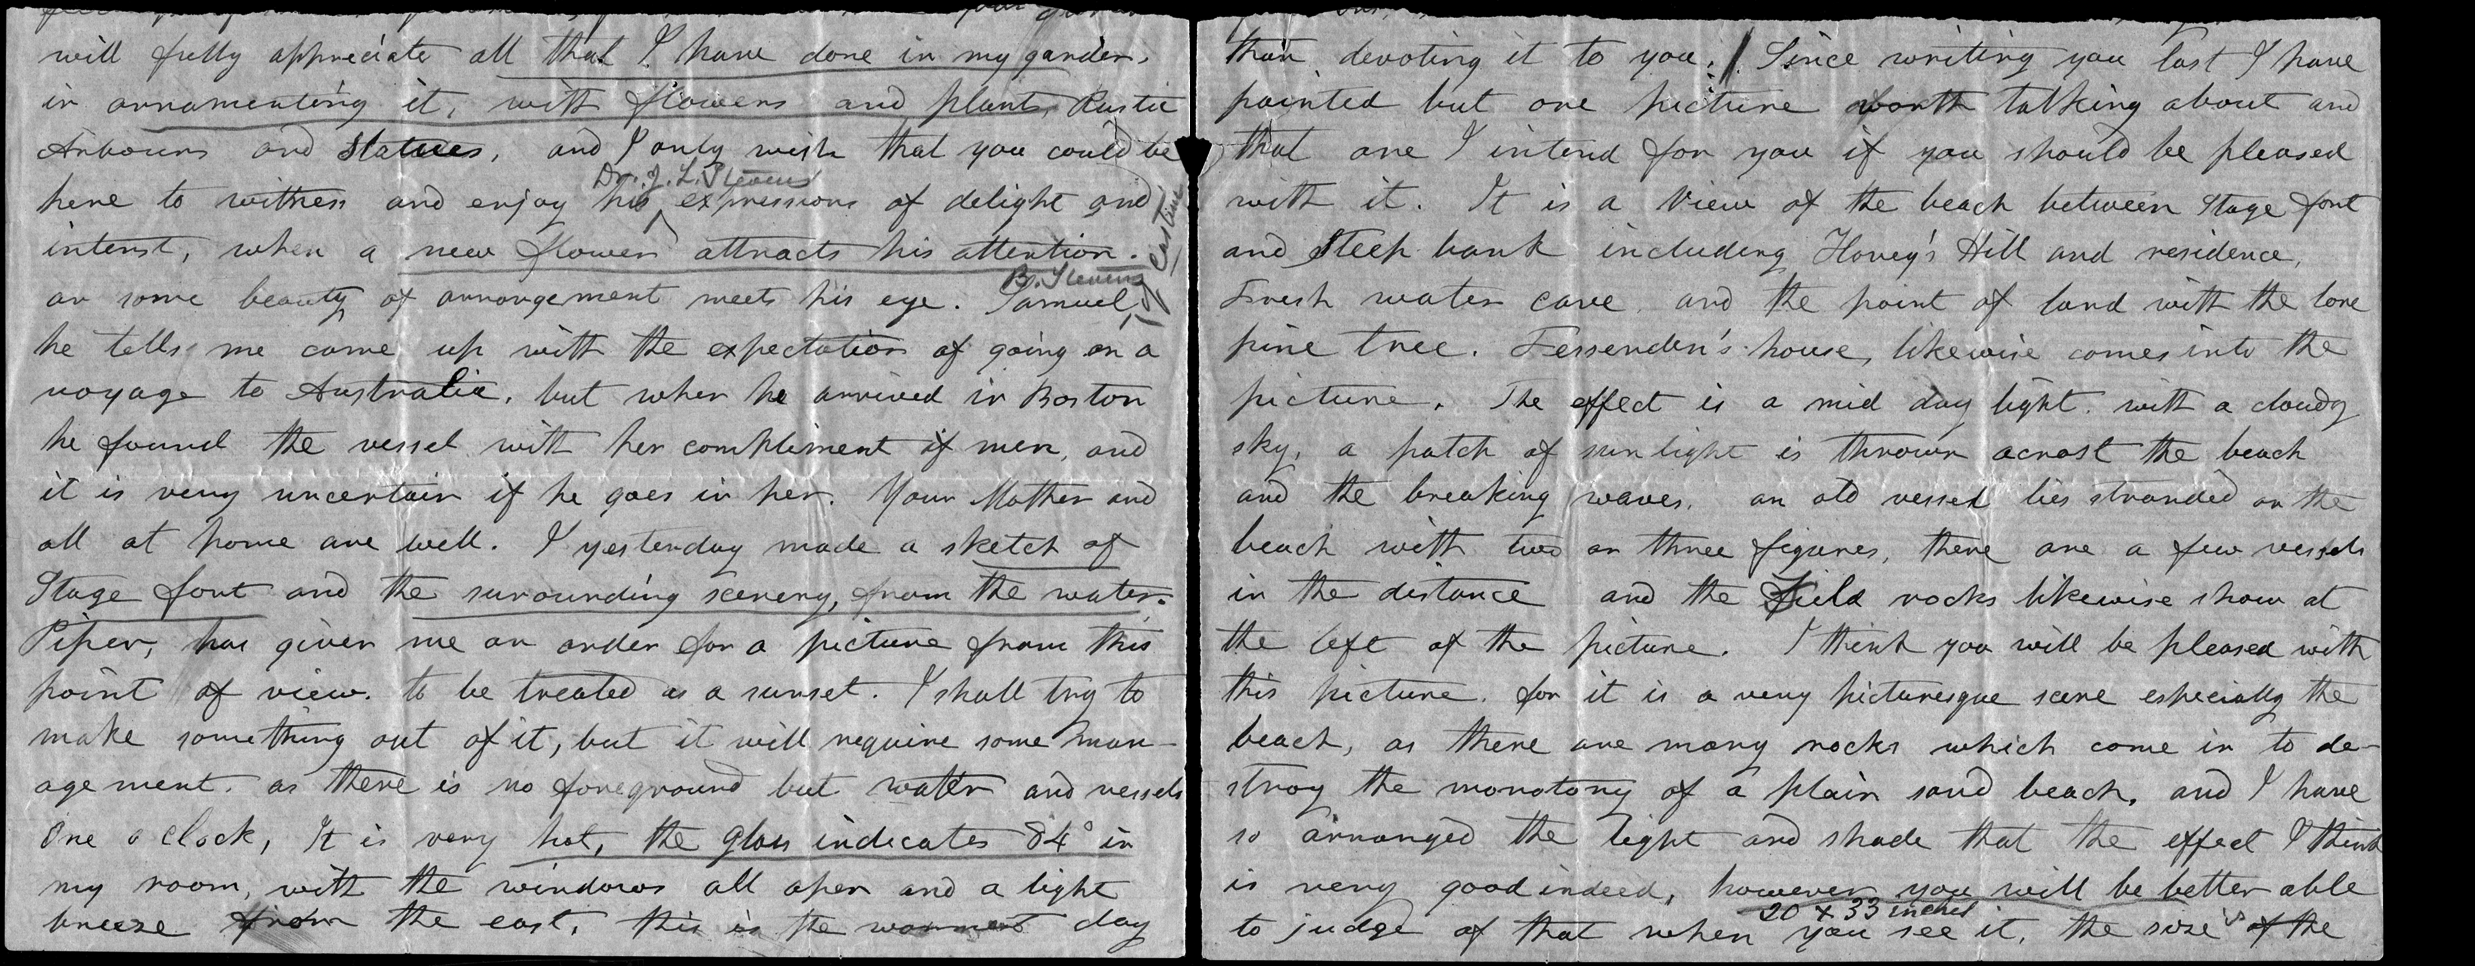 will fully appreciate all that I have done in my garden,
in ornamenting it, with flowers and plants, Rustic
Arbours and Statues, and I only wish that you could be
Dr. J. L. Stevens
here to witness and enjoy his expressions of delight and
interest, when a new flower attracts his attention.
B. Stevens
Castine
or some beauty of arrangement meets his eye. Samuel,
he tells me came up with the expectation of going on a
voyage to Australia, but when he arrived in Boston
he found the vessel with her compliment of men, and
it is very uncertain if he goes in her. Your Mother and
all at home are well. I yesterday made a sketch of
Stage fort and the surounding scenery, from the water.
Piper, has given me an order for a picture from this
point of view. to be treated as a sunset. I shall try to
make something out of it, but it will require some man-
agement. as there is no foreground but water and vessels
One o clock, It is very hot, the glass indicates 84° in
my room, with the windows all open and a light
breeze from the east, this is the warmest day
than devoting it to you. Since writing you last I have
painted but one picture worth talking about and
that one I intend for you if you should be pleased
with it. It is a View of the beach between Stage fort
and Steep bank including Hovey's Hill and residence,
Fresh water cove and the point of land with the lone
pine tree. Fessenden's house, likewise comes into the
picture. The effect is a mid day light. with a cloudy
sky, a patch of sun light is thrown acrost the beach
and the breaking waves. an old vessel lies stranded on the
beach with two or three figures, there are a few vessels
in the distance and the Field rocks likewise show at
the left of the picture. I think you will be pleased with
this picture. for it is a very picturesque scene especially the
beach, as there are many rocks which come in to de-
stroy the monotony of a plain sand beach, and I have
so arranged the light and shade that the effect I think
is very good indeed, however you will be better able
20 x 33 inches
to judge of that when you see it, the size is of the